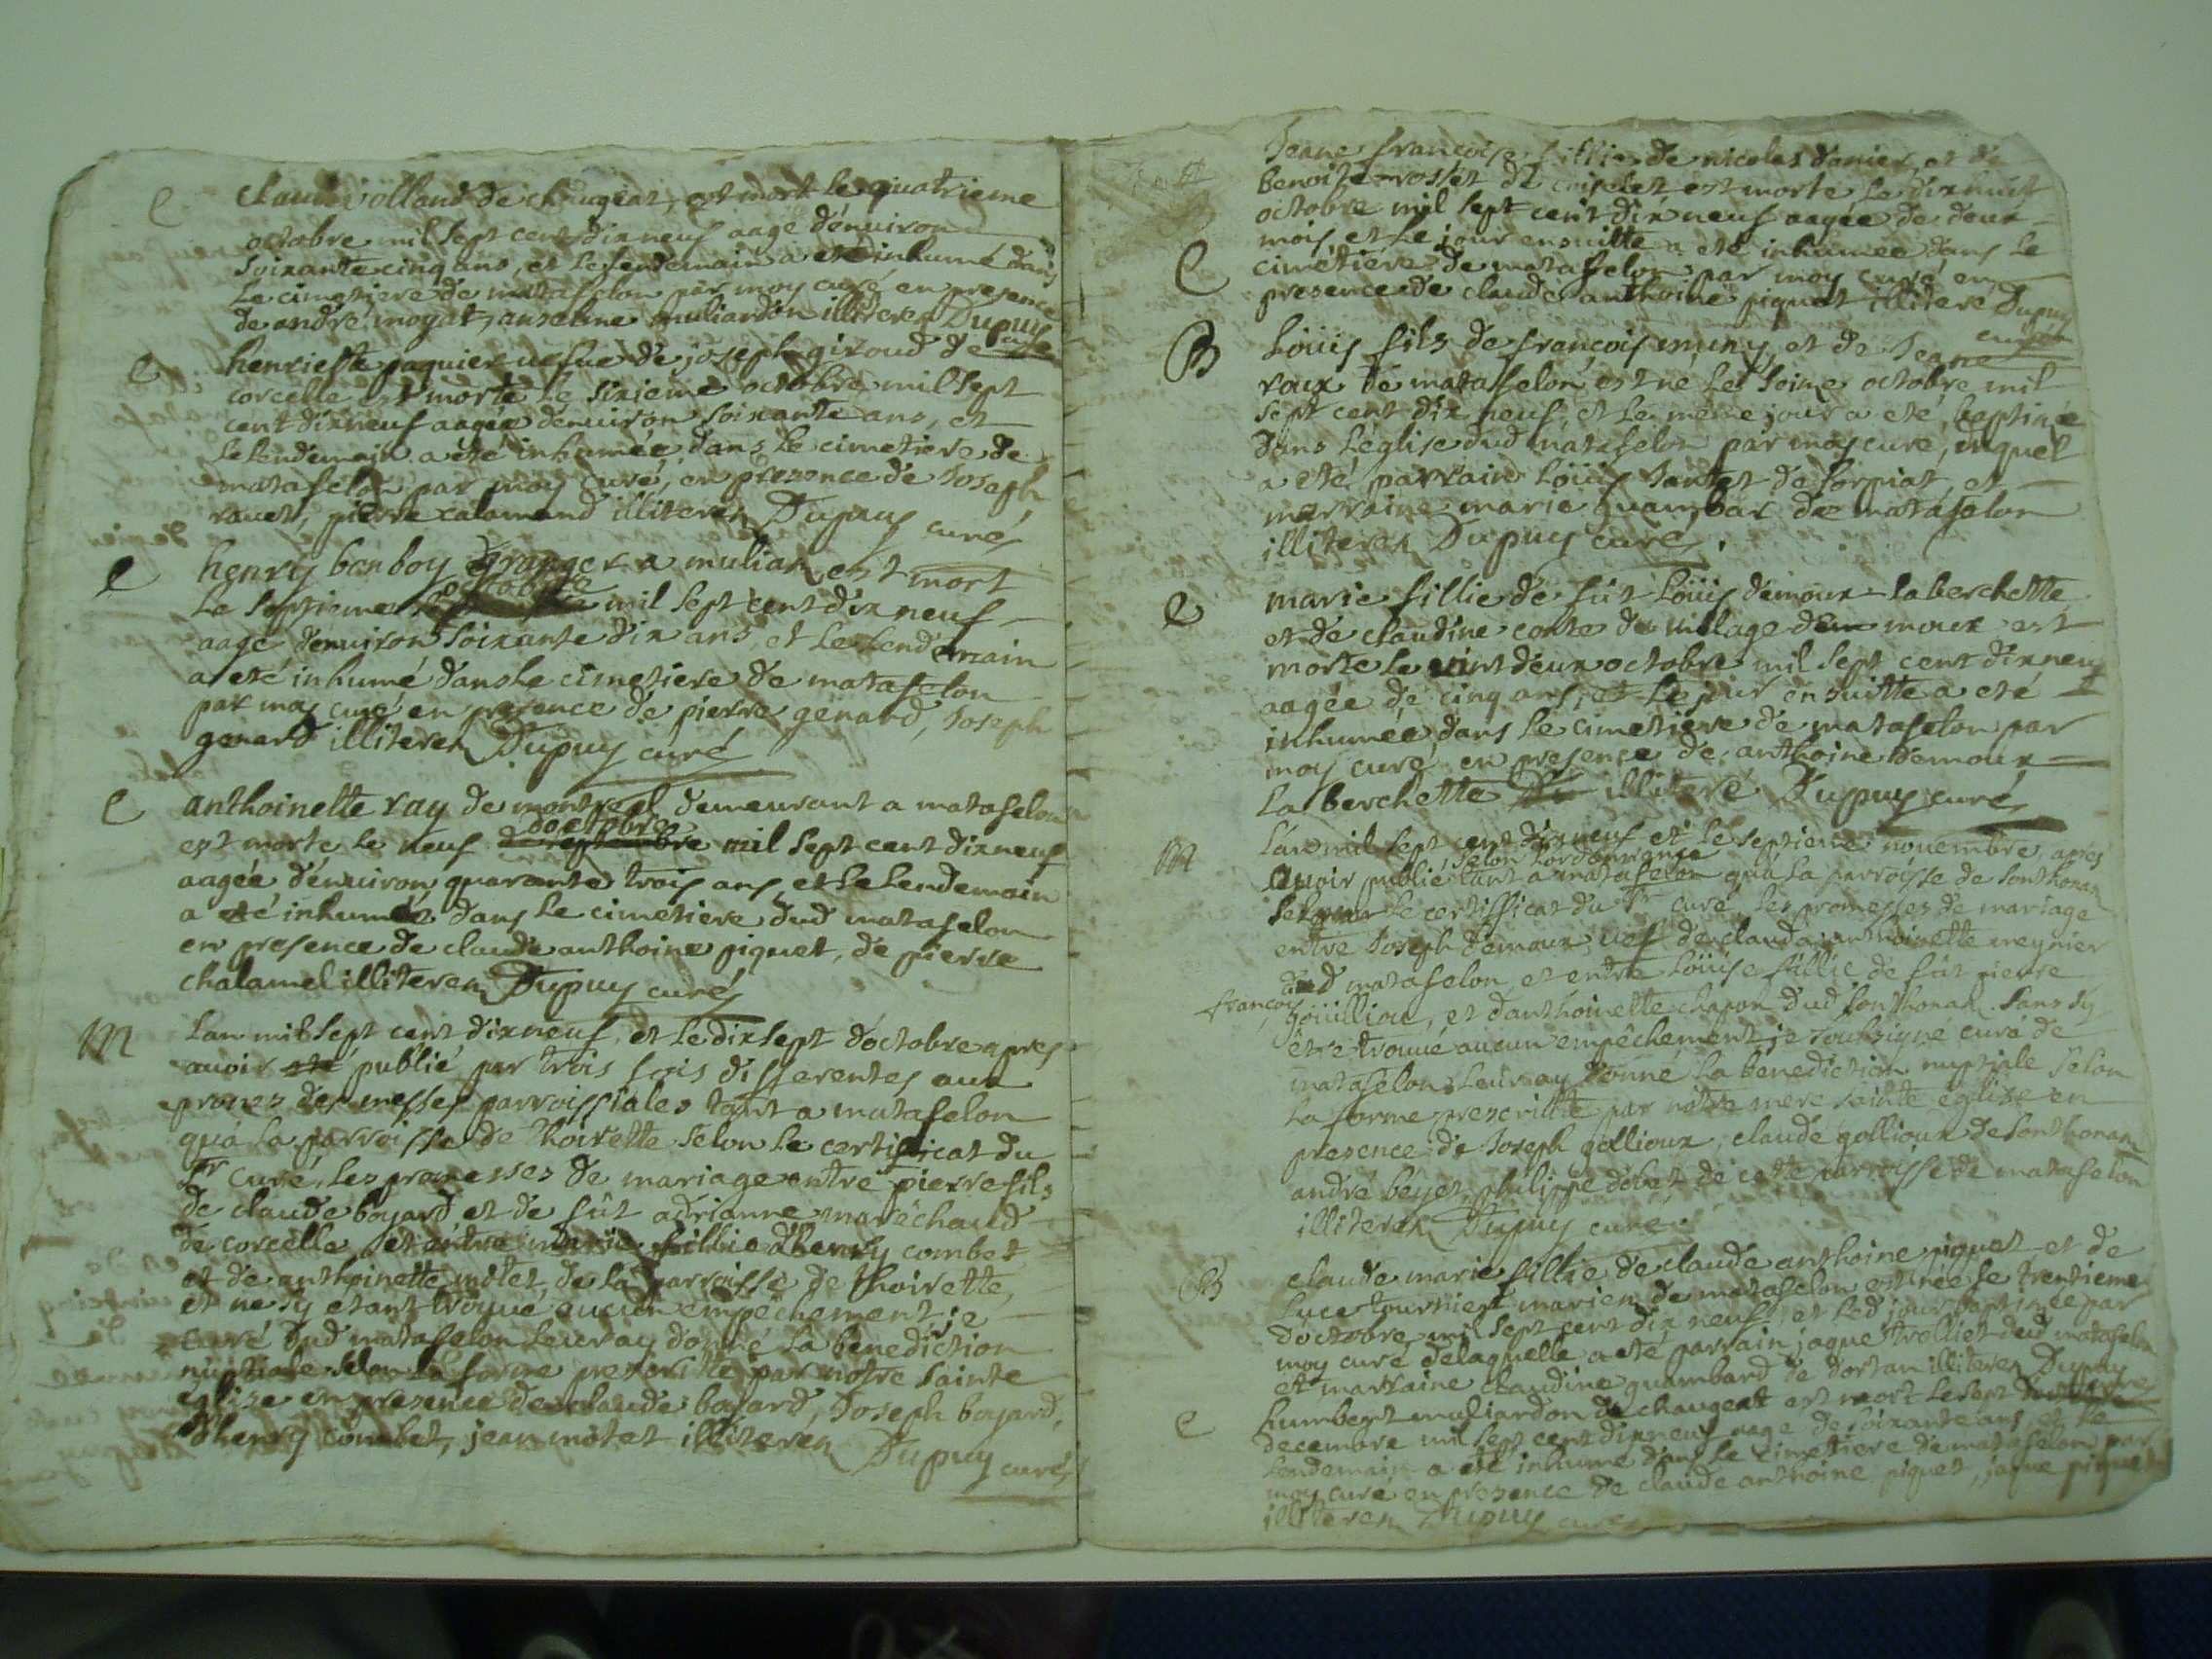 e
claude volland de chaugeat, est mort le quatrieme
octobre mil sept cent dix neuf aagé d'enuiron
soixante cinq ans, et le lendemain a eté inhumé dans
le cimetiere de matafelon par moy curé en presence
de andré moyat, anselme muliardon illiteren Dupuy
curé
e
henriette paquier uefue de joseph giroud de
corcelle est morte le sixieme octobre mil sept
cent dix neuf aagée d'enuiron soixante ans, et
le lendemain a été inhumée dans le cimetiere de
matafelon par moy curé, en presence de Joseph
rauet, pierre calamand illiteren Dupuy curé
e
henry bonboy granger a muliat est mort
octobre
le septieme mil sept cent dix neuf
aagé d'enuiron soixante dix ans, et le lendemain
a eté inhumé dans le cimetiere de matafelon
par moy curé en presence de pierre genard, Joseph
genard illiteren Dupuy curé
e
anthoinette ray de montreal demeurant a matafelon
doctobre
est morte le neuf de septembre mil sept cent dix neuf
aagée d'enuiron quarante trois ans, et le lendemain
a eté inhumée dans le cimetiere dud matafelon
en presence de claude anthoine piquet, de pierre
chalamel illiteren Dupuy curé
M
lan mil sept cent dix neuf, et le dix sept d'octobre apres
auoir eté publié par trois fois differentes aux
prones des messes parroissiales tant a matafelon
qu'a la parroisse de thoirette selon le certificat du
Sr curé, les promesses de mariage entre pierre fils
de claude boyard et de fût adrianne maréchaud
de corcelle et entre marie fillie d'henry combet
et de anthoinette motet, de la parroisse de thoirette,
et ne sy etant trouué aucun empéchement, je
curé dud matafelon leur ay donné la bénediction
nuptiale selon la forme prescritte par notre sainte
église en presence de claude boyard, Joseph boyard,
d'henry combet, jean motet illiteren Dupuy curé
Jeane françoise fillie de nicolas danier, et de
benoite rosset de coiselet est morte le dix huit
octobre mil sept cent dix neuf aagée de deux
mois, et le jour ensuitte a eté inhumée dans le
e
cimetiére de matafelon par moy curé en
presence de claude anthoine piquet illitere Dupuy
curé
B
Loüis fils de françois muny et de Jeane
roux de matafelon est né le octobre mil
sept cent dix neuf, et le méme jour a eté baptisée
dans l'église dud matafelon par moy curé, duquel
a eté parrain Loüis tantet de sorpiat, et
marraine marie guambar de matafelon
illiteren Dupuy curé
e
marie fillie de fût Loüis demoux la berchette
et de claudine conte du uillage de moux est
morte le uint deux octobre mil sept cent dix neuf
aagée de cinq ans, et le jour ensuitte a eté
inhumée dans le cimetiére de matafelon par
moy curé en presence de anthoine demoux
la berchette illiteré Dupuy curé
M
L'an mil sept cent dix neuf et le septieme nouembre, apres
selon l'ordonnance
auoir publié tant a matafelon qu'a la parroisse de sonthonax
selon le certifficat du Sr curé les promesses de mariage
entre Joseph demoux, uef de clauda anthoinette reynier
dud matafelon, et entre Loüise fillie de fût pierre
françois
goüilliou, et d'anthoinette chapon dud sonthonax. sans sy
etre trouué aucun empêchement je soubsigné curé de
matafelon leur ay donné la benediction nuptiale selon
la forme prescritte par nôtre mere sainte églize en
presence de Joseph golliour, claude golliour de sonthonax
andré beyet, philippe dobet de cette parroisse de matafelon
illiteren Dupuy curé
B
claude marie fillie de claude anthoine piquet et de
luce tournier mariez de matafelon est née le trentieme
d'octobre mil sept cent dix neuf, et led jour baptisée par
moy curé de laquelle a eté parrain jaque trolliet dud matafelon
et marraine claudine guambard de dortan illiteren Dupuy
e
humbert muliardon de chaugeat est mort le sept
decembre mil sept cent dix neuf aagé de soixante ans, et le
lendemain a eté inhumé dans le cimetiere de matafelon par
moy curé en presence de claude anthoine piquet, jaque piquet
illiteren Dupuy curé